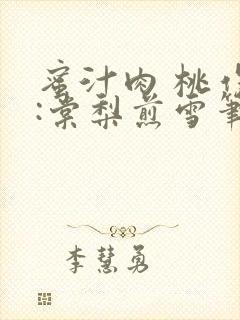 蜜汁肉桃作
:棠梨煎雪筆
李慧勇